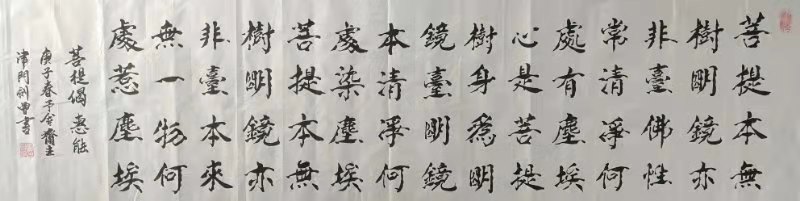 菩提本無
樹明鏡亦
非臺佛性
常清淨何
處有塵埃
心是菩提
樹身爲明
鏡臺明鏡
本清淨何
處染塵埃
菩提本無
樹明鏡亦
非臺本來
無一物何
處惹塵埃
菩提偈 惠能
庚子春 齋主
津門劍 書